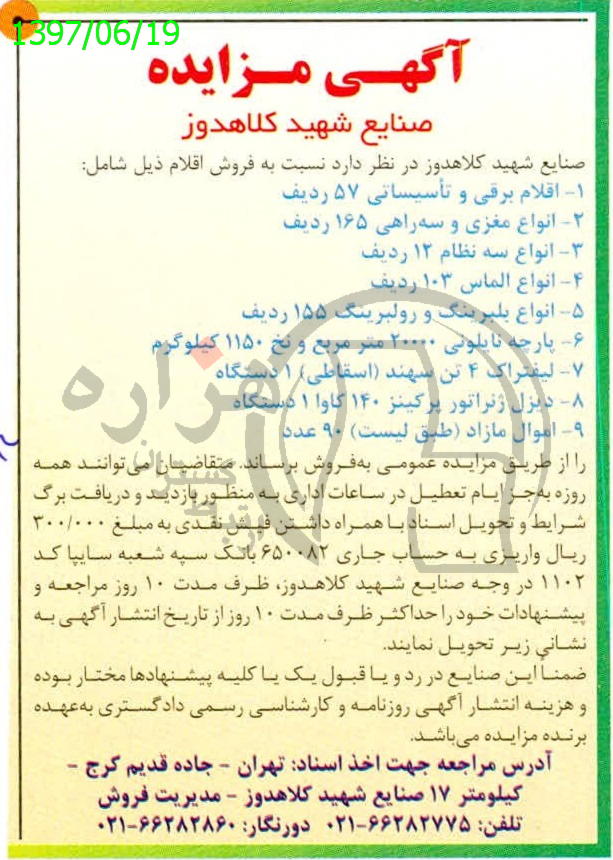 1397/06/19
آگهی مزایده
صنایع شهید کلاهدوز
صنایع شهید کلاهدوز در نظر دارد نسبت به فروش اقلام ذیل شامل:
۱- اقلام برقی و تأسیساتی ۵۷ ردیف
۲- انواع مغزی و سه‌راهی ۱۶۵ ردیف
۳- انواع سه نظام ۱۲ ردیف
۴- انواع الماس ۱۰۳ ردیف
۵- انواع بلبرینگ و رولبرینگ ۱۵۵ ردیف
۶- پارچه نایلونی ۲۰۰۰۰ متر مربع و نخ ۱۱۵۰ کیلوگرم
۷- لیفتراک ۴ تن سهند (اسقاطی) ۱ دستگاه
۸- دیزل ژنراتور پرکینز ۱۴۰ کاوا ۱ دستگاه
۹- اموال مازاد (طبق لیست) ۹۰ عدد
را از طریق مزایده عمومی به‌فروش برساند. متقاضیان می‌توانند همه
روزه به‌جز ایام تعطیل در ساعات اداری به منظور بازدید و دریافت برگ
شرایط و تحویل اسناد با همراه داشتن فیش نقدی به مبلغ ۳۰۰/۰۰۰
ریال واریزی به حساب جاری ۶۵۰۰۸۲ بانک سپه شعبه سایپا کد
۱۱۰۲ در وجه صنایع شهید کلاهدوز، ظرف مدت ۱۰ روز مراجعه و
پیشنهادات خود را حداکثر ظرف مدت ۱۰ روز از تاریخ انتشار آگهی به
نشانی زیر تحویل نمایند.
ضمناً این صنایع در رد و یا قبول یک یا کلیه پیشنهادها مختار بوده
و هزینه انتشار آگهی روزنامه و کارشناسی رسمی دادگستری به‌عهده
برنده مزایده می‌باشد.
آدرس مراجعه جهت اخذ اسناد: تهران - جاده قدیم کرج -
کیلومتر ۱۷ صنایع شهید کلاهدوز - مدیریت فروش
تلفن: ۶۶۲۸۲۷۷۵-۰۲۱ دورنگار: ۶۶۲۸۲۸۶۰-۰۲۱
هزاره